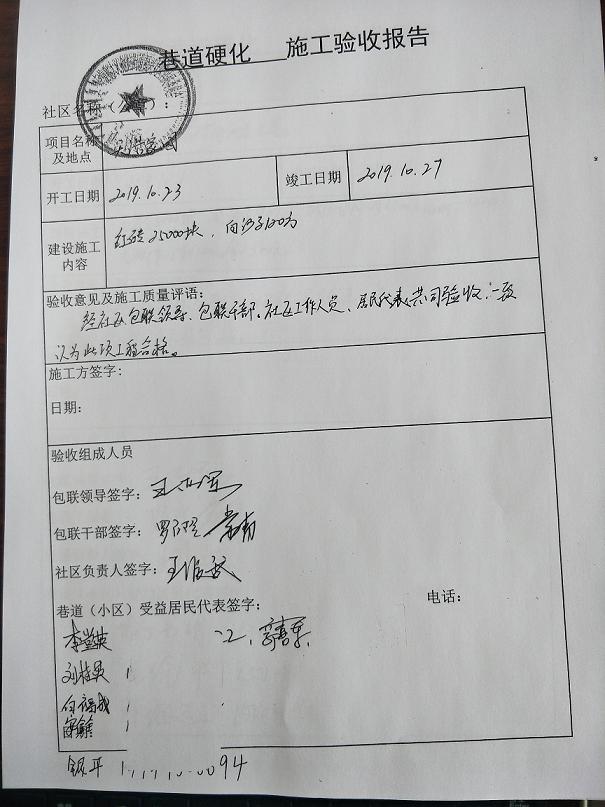 巷道硬化 施工验收报告
社区名称（ ）：
项目名称及地点
开工日期 2019.10.23 竣工日期 2019.10.27
建设施工内容 红砖25000块，白沙子120方
验收意见及施工质量评语：
经社区包联领导、包联干部、社区工作人员、居民代表共同验收，一致
认为此项工程合格。
施工方签字：
日期：
验收组成人员
包联领导签字：王
包联干部签字：罗
社区负责人签字：王
电话：
巷道（小区）受益居民代表签字：
李
刘桂
白福成
平 94